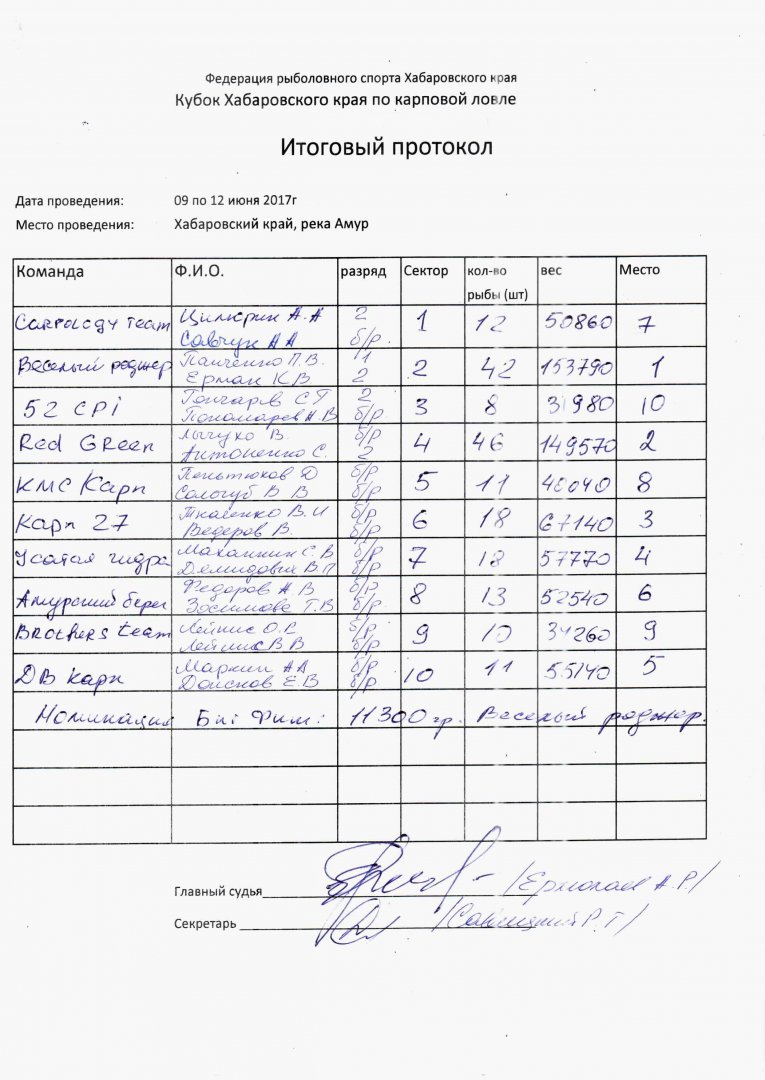 Федерация рыболовного спорта Хабаровского края
Кубок Хабаровского края по карповой ловле
Итоговый протокол
Дата проведения: 09 по 12 июня 2017г
Место проведения: Хабаровский край, река Амур
Команда Ф.И.О. разряд Сектор кол-во рыбы (шт) вес Место
Carpology team Цилюрик А.А 2 1 12 50860 7
Савчук АА б/р.
Веселый роджер Панченко П.В. 1 2 42 153790 1
Ерман К.В 2
52 CPI Гончаров СТ 2 3 8 31980 10
Пономарев А.В б/р
Red Green В. б/р 4 46 149570 2
Антоненко С. 2
КМС Карп Д б/р 5 11 8
Сологуб В В б/р
Карп 27 Ткаченко В.И б/р 6 18 67140 3
Ведеров В. б/р
Усатая гидра С.В б/р 7 18 57770 4
Демидович В.П б/р
Амурский берег Федоров А В б/р 8 13 52540 6
Т.В б/р
Brothers team Лейпис О.В б/р 9 10 9
Лейпис В В б/р
ДВ карп Маркин АА б/р 10 11 55140 5
Е.В б/р
Номинация Биг Фиш: 11300 гр. Веселый роджер.
Главный судья /Ермолаев А.Р/
Секретарь /Савицкий Р.Т/